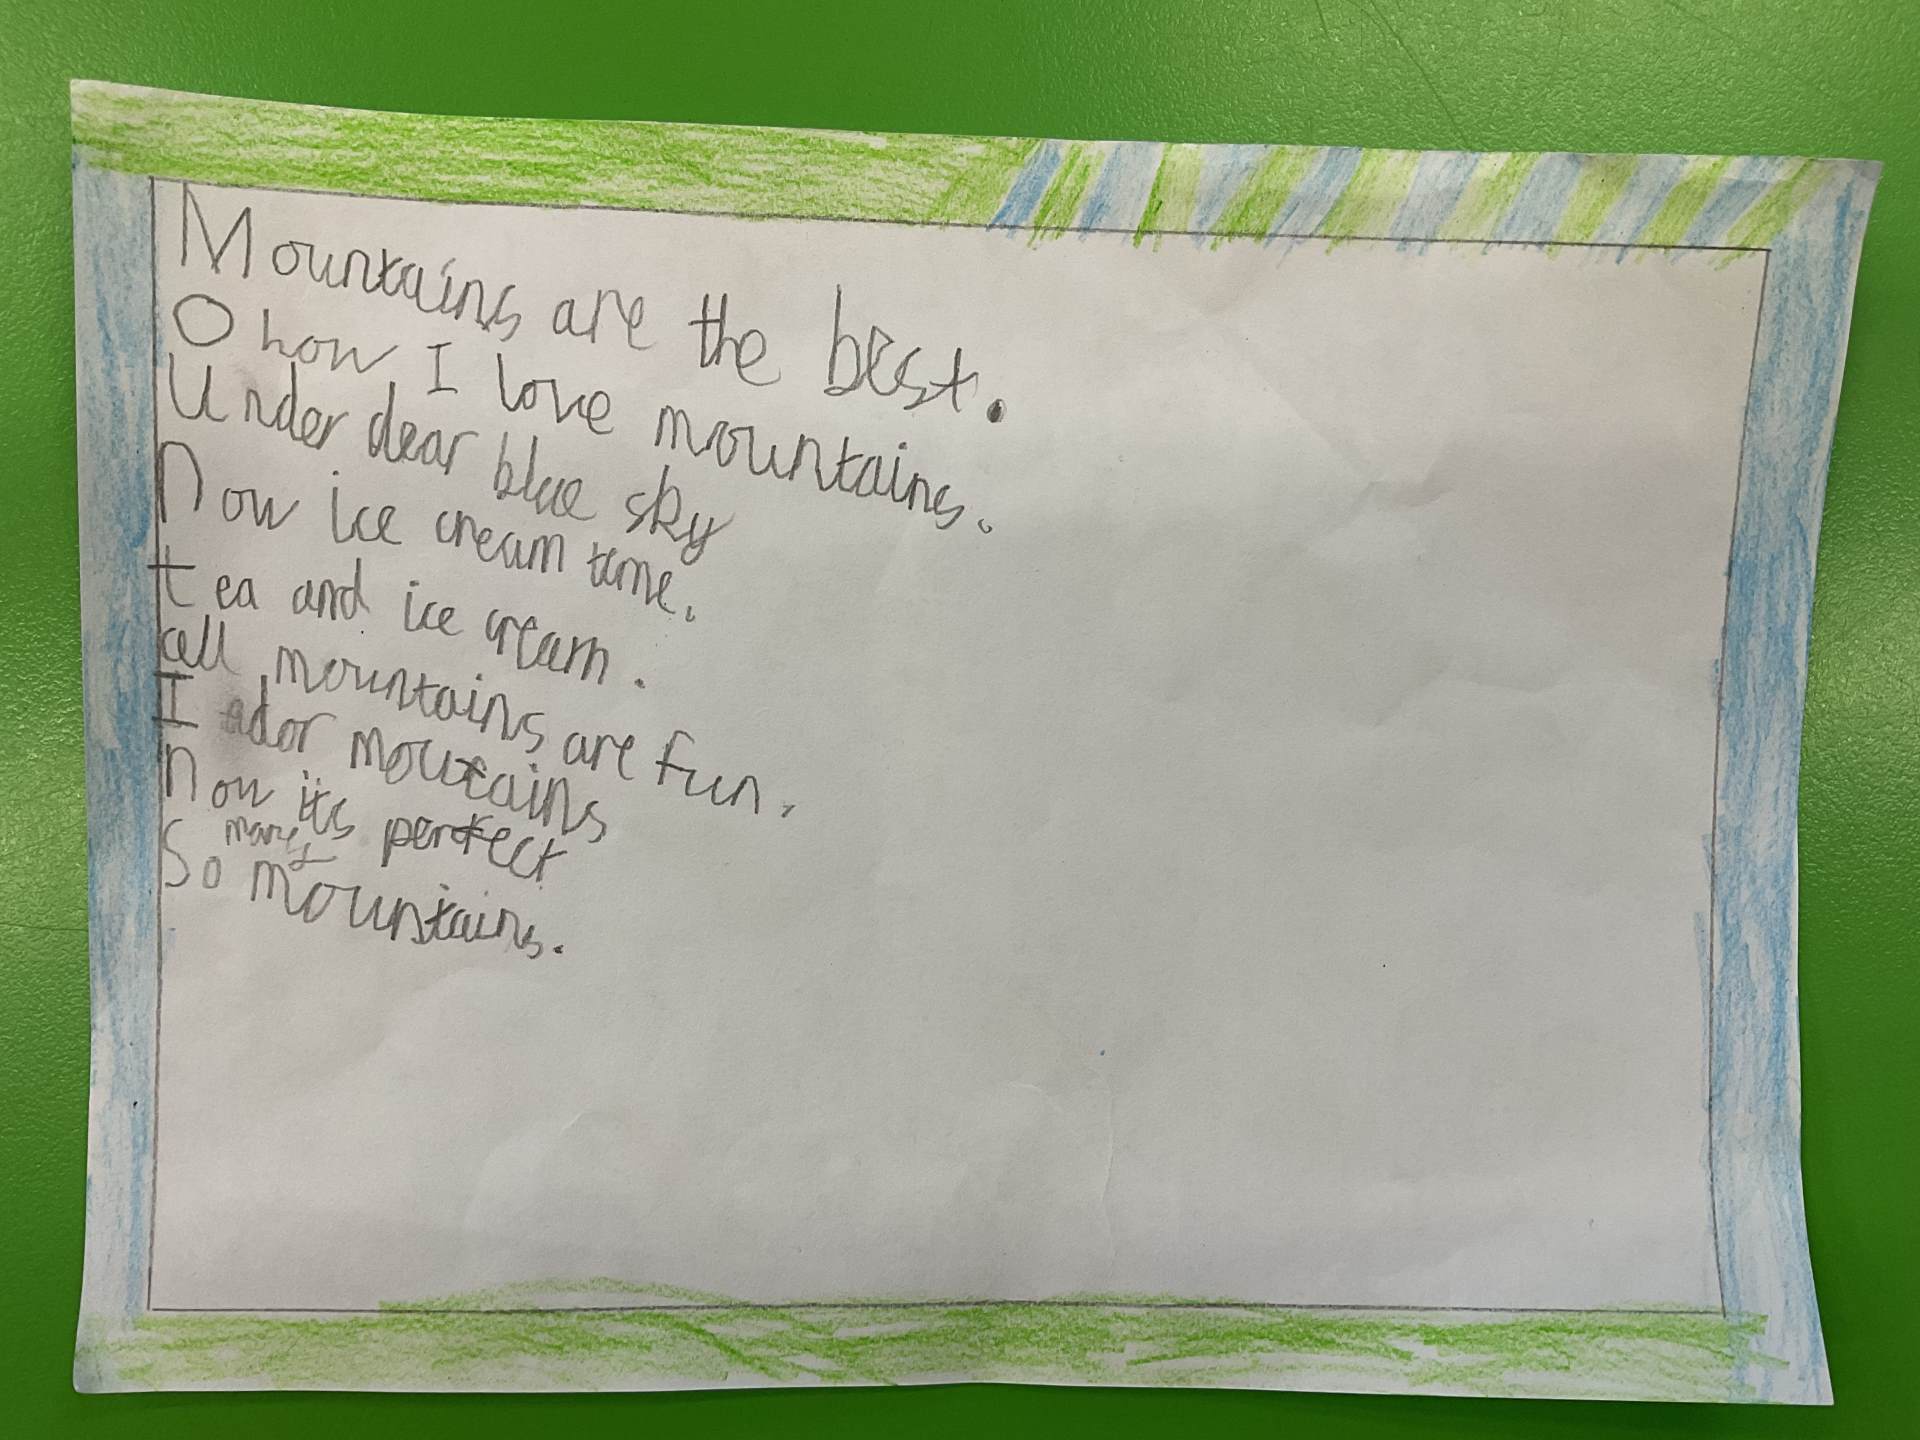 Mountains are the best.
O how I love mountains.
Under clear blue sky
Now ice cream time.
tea and ice cream.
all mountains are fun.
I ador mountains
Now its perfect
So many mountains.